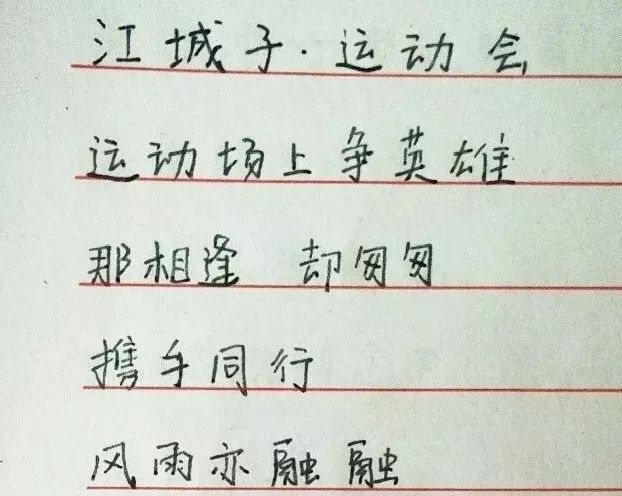 江城子·运动会
运动场上争英雄
那相逢 却匆匆
携手同行
风雨亦融融